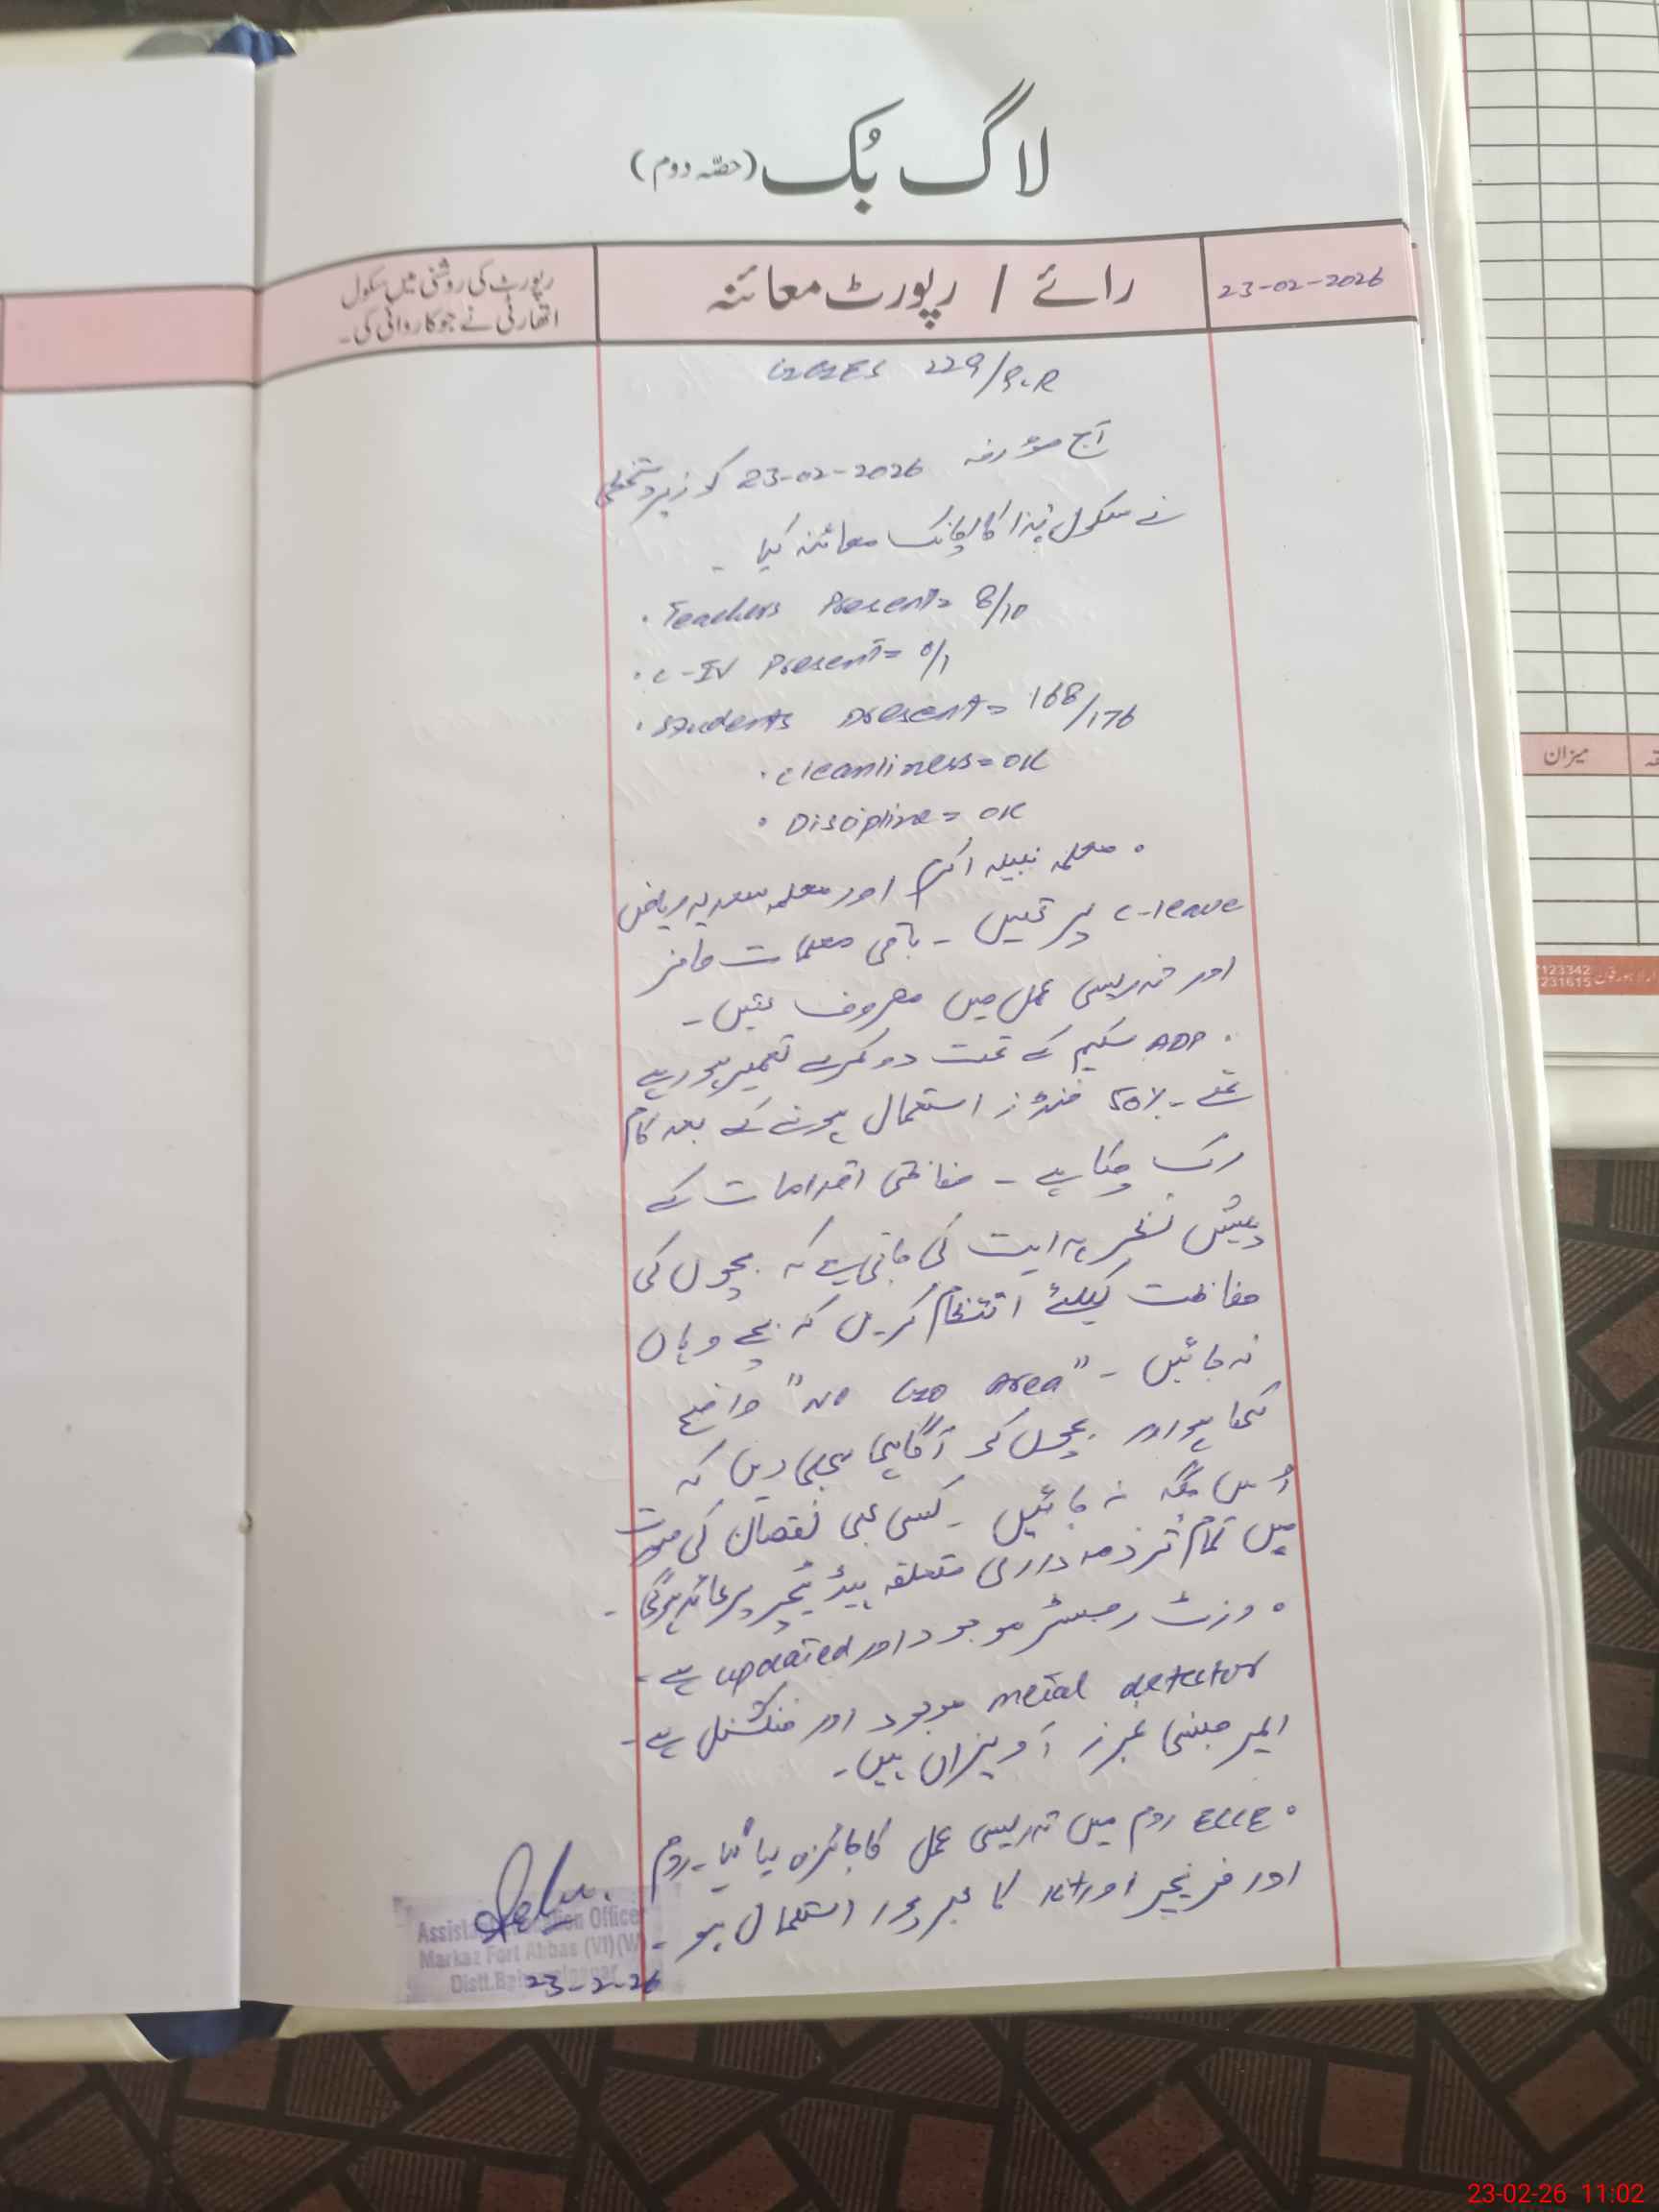 لاگ بُک (حصّہ دوم)
23-02-2026
رائے / رپورٹ معائنہ
رپورٹ کی روشنی میں سکول
اتھارٹی نے جو کاروائی کی۔
GGES 229/9.R
آج مؤرخہ 23-02-2026 کو زیردستخطی
نے سکول ہٰذا کا اچانک معائنہ کیا ۔
· Teachers Present= 8/10
· C-IV Present= 0/1
· Students Present= 168/176
· Cleanliness = OK
· Discipline = OK
· معلمہ نبیلہ اکرم اور معلمہ سعدیہ ریاض
C-leave پر تھیں ۔ باقی معلمات حاضر
اور تدریسی عمل میں مصروف تھیں ۔
· ADP سکیم کے تحت دو کمرے تعمیر ہو رہے
تھے ۔ 50% فنڈز استعمال ہونے کے بعد کام
رک چکا ہے ۔ حفاظتی اقدامات کے
پیش نظر ہدایت کی جاتی ہے کہ بچوں کی
حفاظت کیلئے انتظام کریں کہ بچے وہاں
نہ جائیں ۔ "No Go Area" واضح
لکھا ہو اور بچوں کو آگاہی بھی دیں کہ
اُس جگہ نہ جائیں ۔ کسی بھی نقصان کی صورت
میں تمام تر ذمہ داری متعلقہ ہیڈ ٹیچر پر عائد ہوگی ۔
· وزٹ رجسٹر موجود اور updated ہے ۔
metal detector موجود اور فنکشنل ہے ۔
ایمرجنسی نمبرز آویزاں ہیں ۔
· ECCE روم میں تدریسی عمل کا جائزہ لیا گیا ۔ روم
اور فرنیچر اور Kit کا بھرپور استعمال ہو ۔
Officer
Markaz Fort Abbas (VI)(W)
Distt.
23-2-26
میزان
123342
231615
23-02-26 11:02